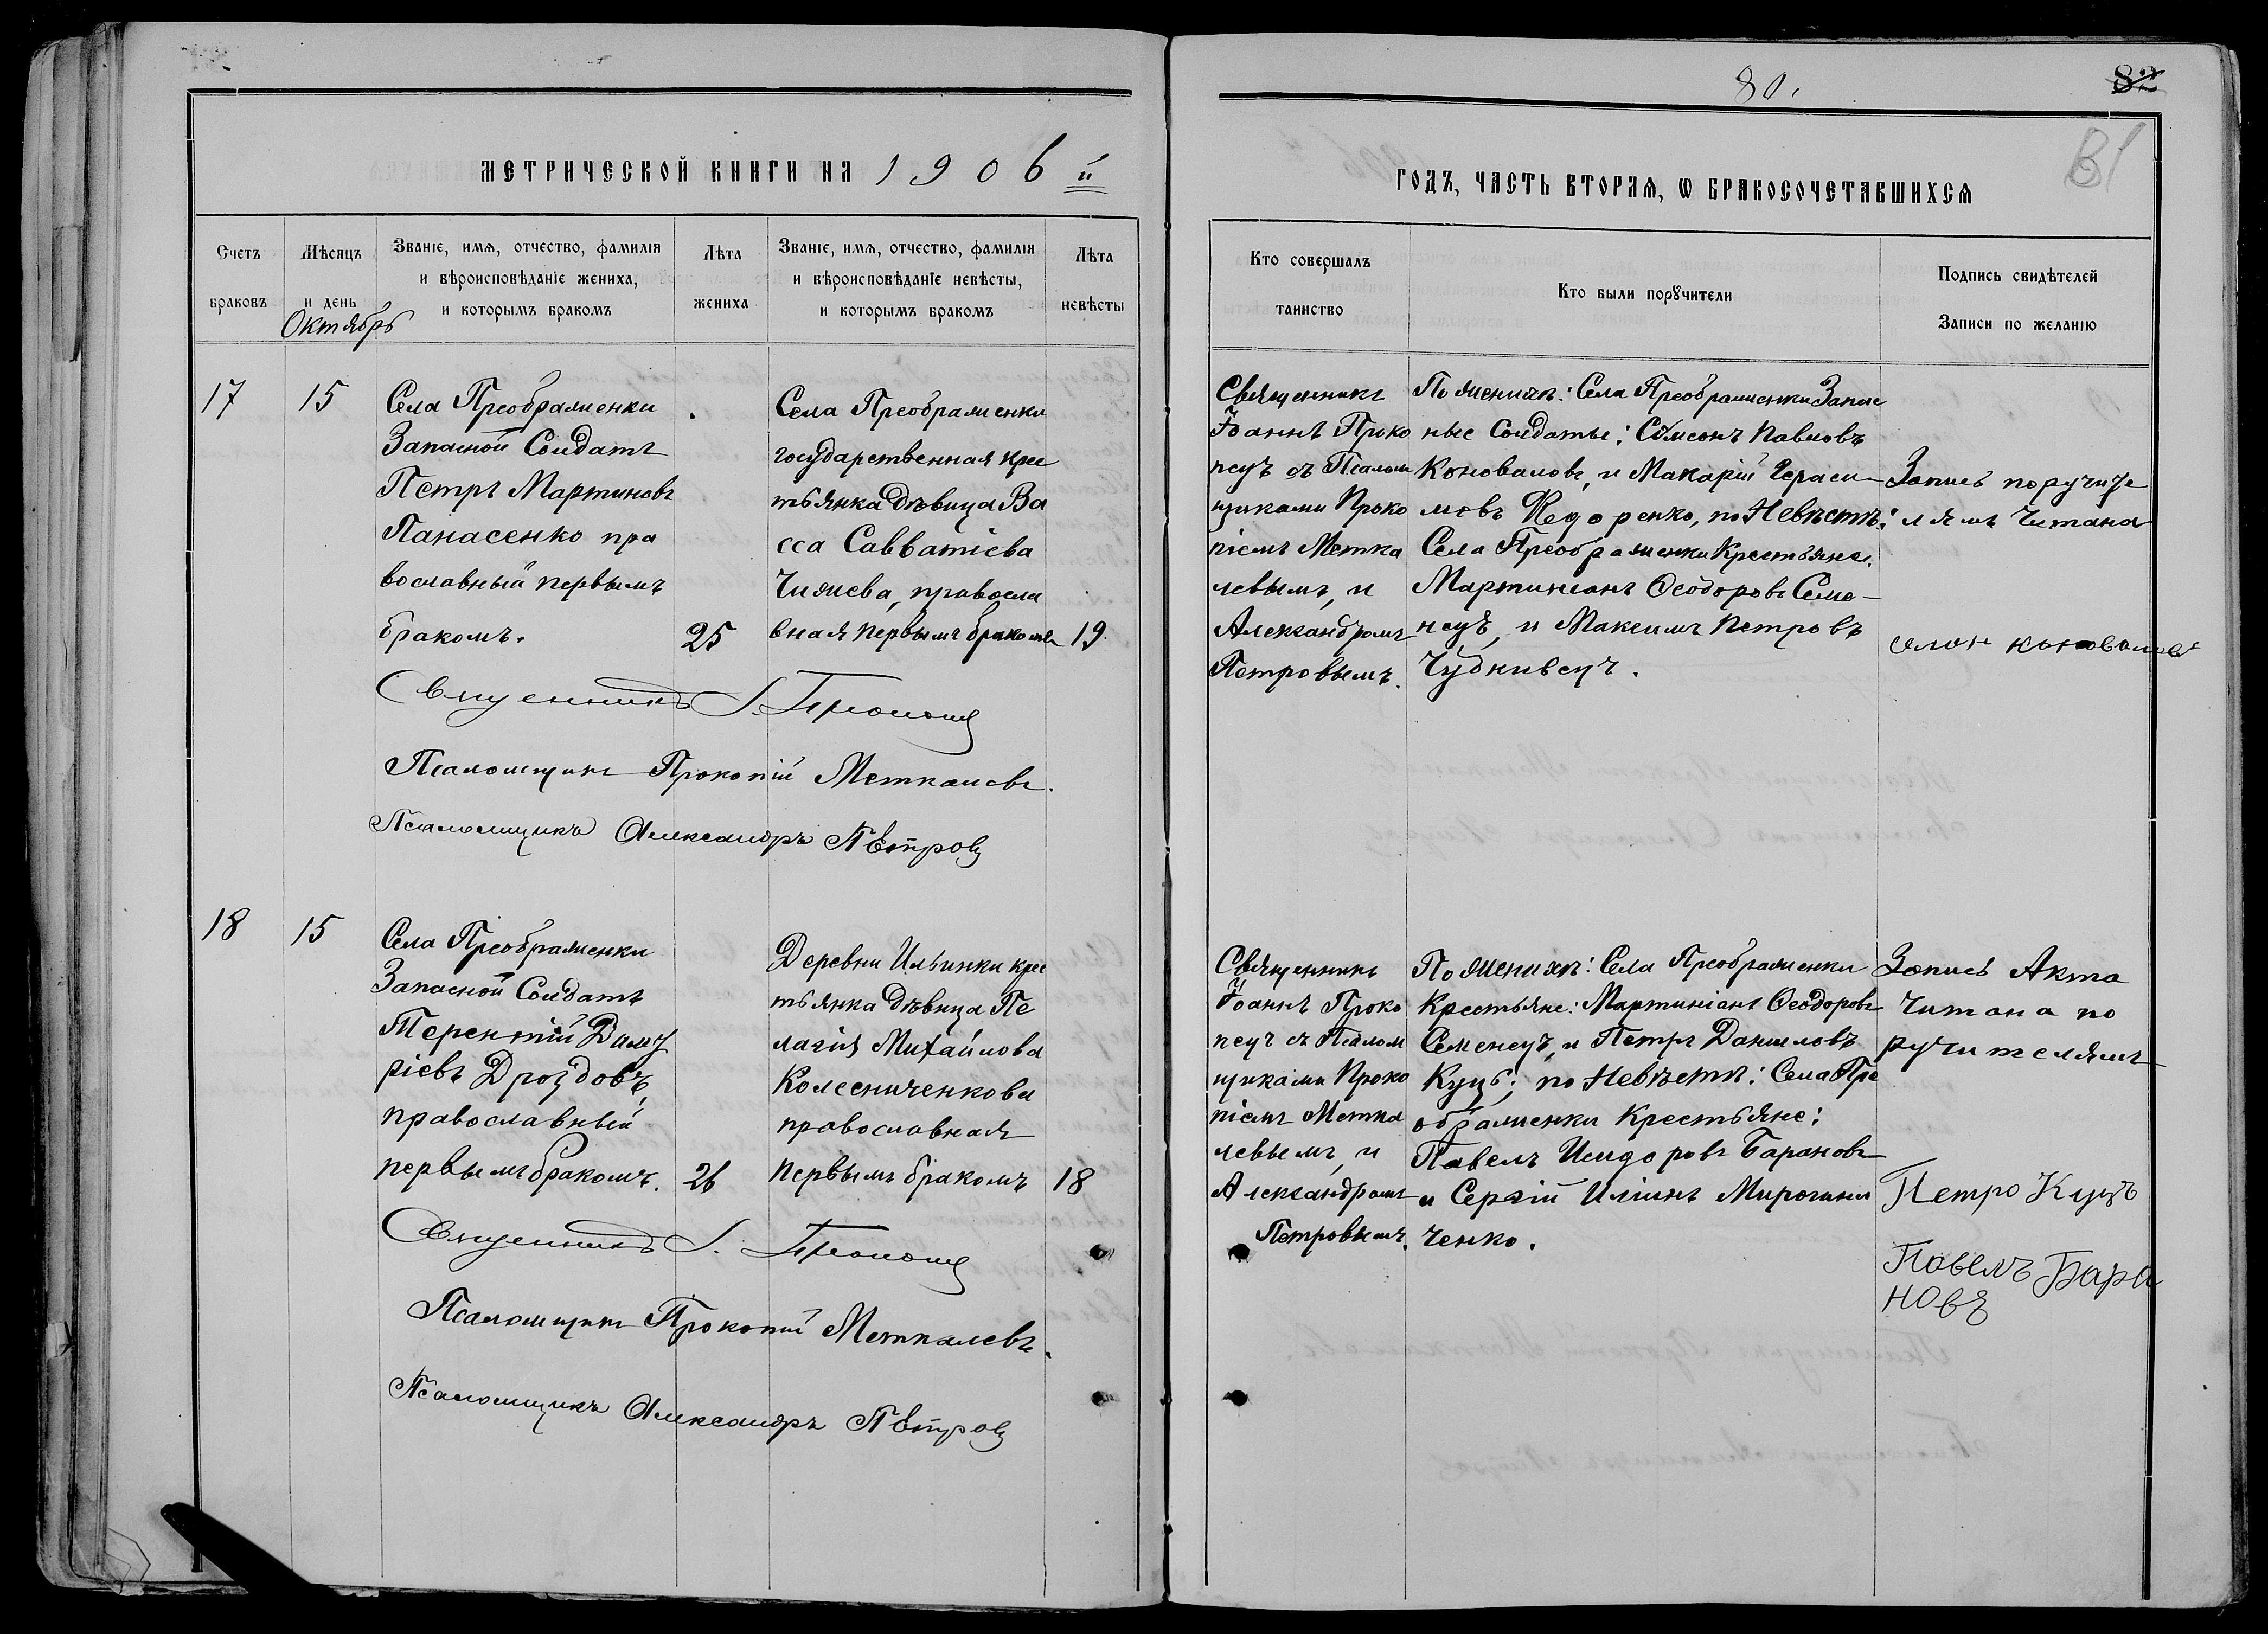 80.
82
81
МЕТРИЧЕСКОЙ КНИГИ НА 1906 й
ГОДЪ, ЧАСТЬ ВТОРАЯ, Ѡ БРАКОСОЧЕТАВШИХСЯ
Счетъ браковъ
Мѣсяцъ и день
Октябрь
Званіе, имя, отчество, фамилія
и вѣроисповѣданіе жениха,
и которымъ бракомъ
Лѣта жениха
Званіе, имя, отчество, фамилія
и вѣроисповѣданіе невѣсты,
и которымъ бракомъ
Лѣта невѣсты
Кто совершалъ
таинство
Кто были поручители
Подпись свидѣтелей
Записи по желанію
17
15
Села Преображенки
Запасной Солдатъ
Петръ Мартиновъ
Панасенко пра
вославный первымъ
бракомъ.
25
Села Преображенки
государственная крес
тьянка дѣвица Ва
сса Савватіева
Чижева, правосла
вная первымъ бракомъ
19
Священникъ
Іоаннъ Проко
пецъ съ Псалом
щиками Проко
піемъ Метка
левымъ, и
Александромъ
Петровымъ.
По женихѣ: Села Преображенки Запас
ные Солдаты: Сѵмеонъ Павловъ
Коноваловъ, и Макарій Гераси-
мовъ Ѳедоренко, по Невѣстѣ:
Села Преображенки Крестьяне:
Мартиніанъ Ѳеодоровъ Семе-
нецъ, и Максимъ Петровъ
Чудкивецъ.
Запись поручите
лямъ читана
Коновалов
Священникъ І. Прокопец
Псаломщикъ Прокопій Меткалевъ.
Псаломщикъ Александръ Петровъ
18
15
Села Преображенки
Запасной Солдатъ
Терентій Димит
ріевъ Дроздовъ,
православный
первымъ бракомъ.
26
Деревни Ильинки крес
тьянка дѣвица Пе
лагія Михайлова
Колесниченкова
православная
первымъ бракомъ
18
Священникъ
Іоаннъ Проко
пецъ съ Псалом
щиками Проко
піемъ Метка
левымъ, и
Александромъ
Петровымъ.
По женихѣ: Села Преображенки
Крестьяне: Мартиніанъ Ѳеодоровъ
Семенецъ, и Петръ Даниловъ
Куцъ; по Невѣстѣ: Села Пре
ображенки Крестьяне:
Павелъ Исидоровъ Барановъ
и Сергій Иліинъ Мирогини
ченко.
Запись Акта
Читана по
ручителямъ
Петро Куцъ
Повелъ Бара
новъ
Священникъ І. Прокопец
Псаломщикъ Прокопій Меткалевъ.
Псаломщикъ Александръ Петровъ